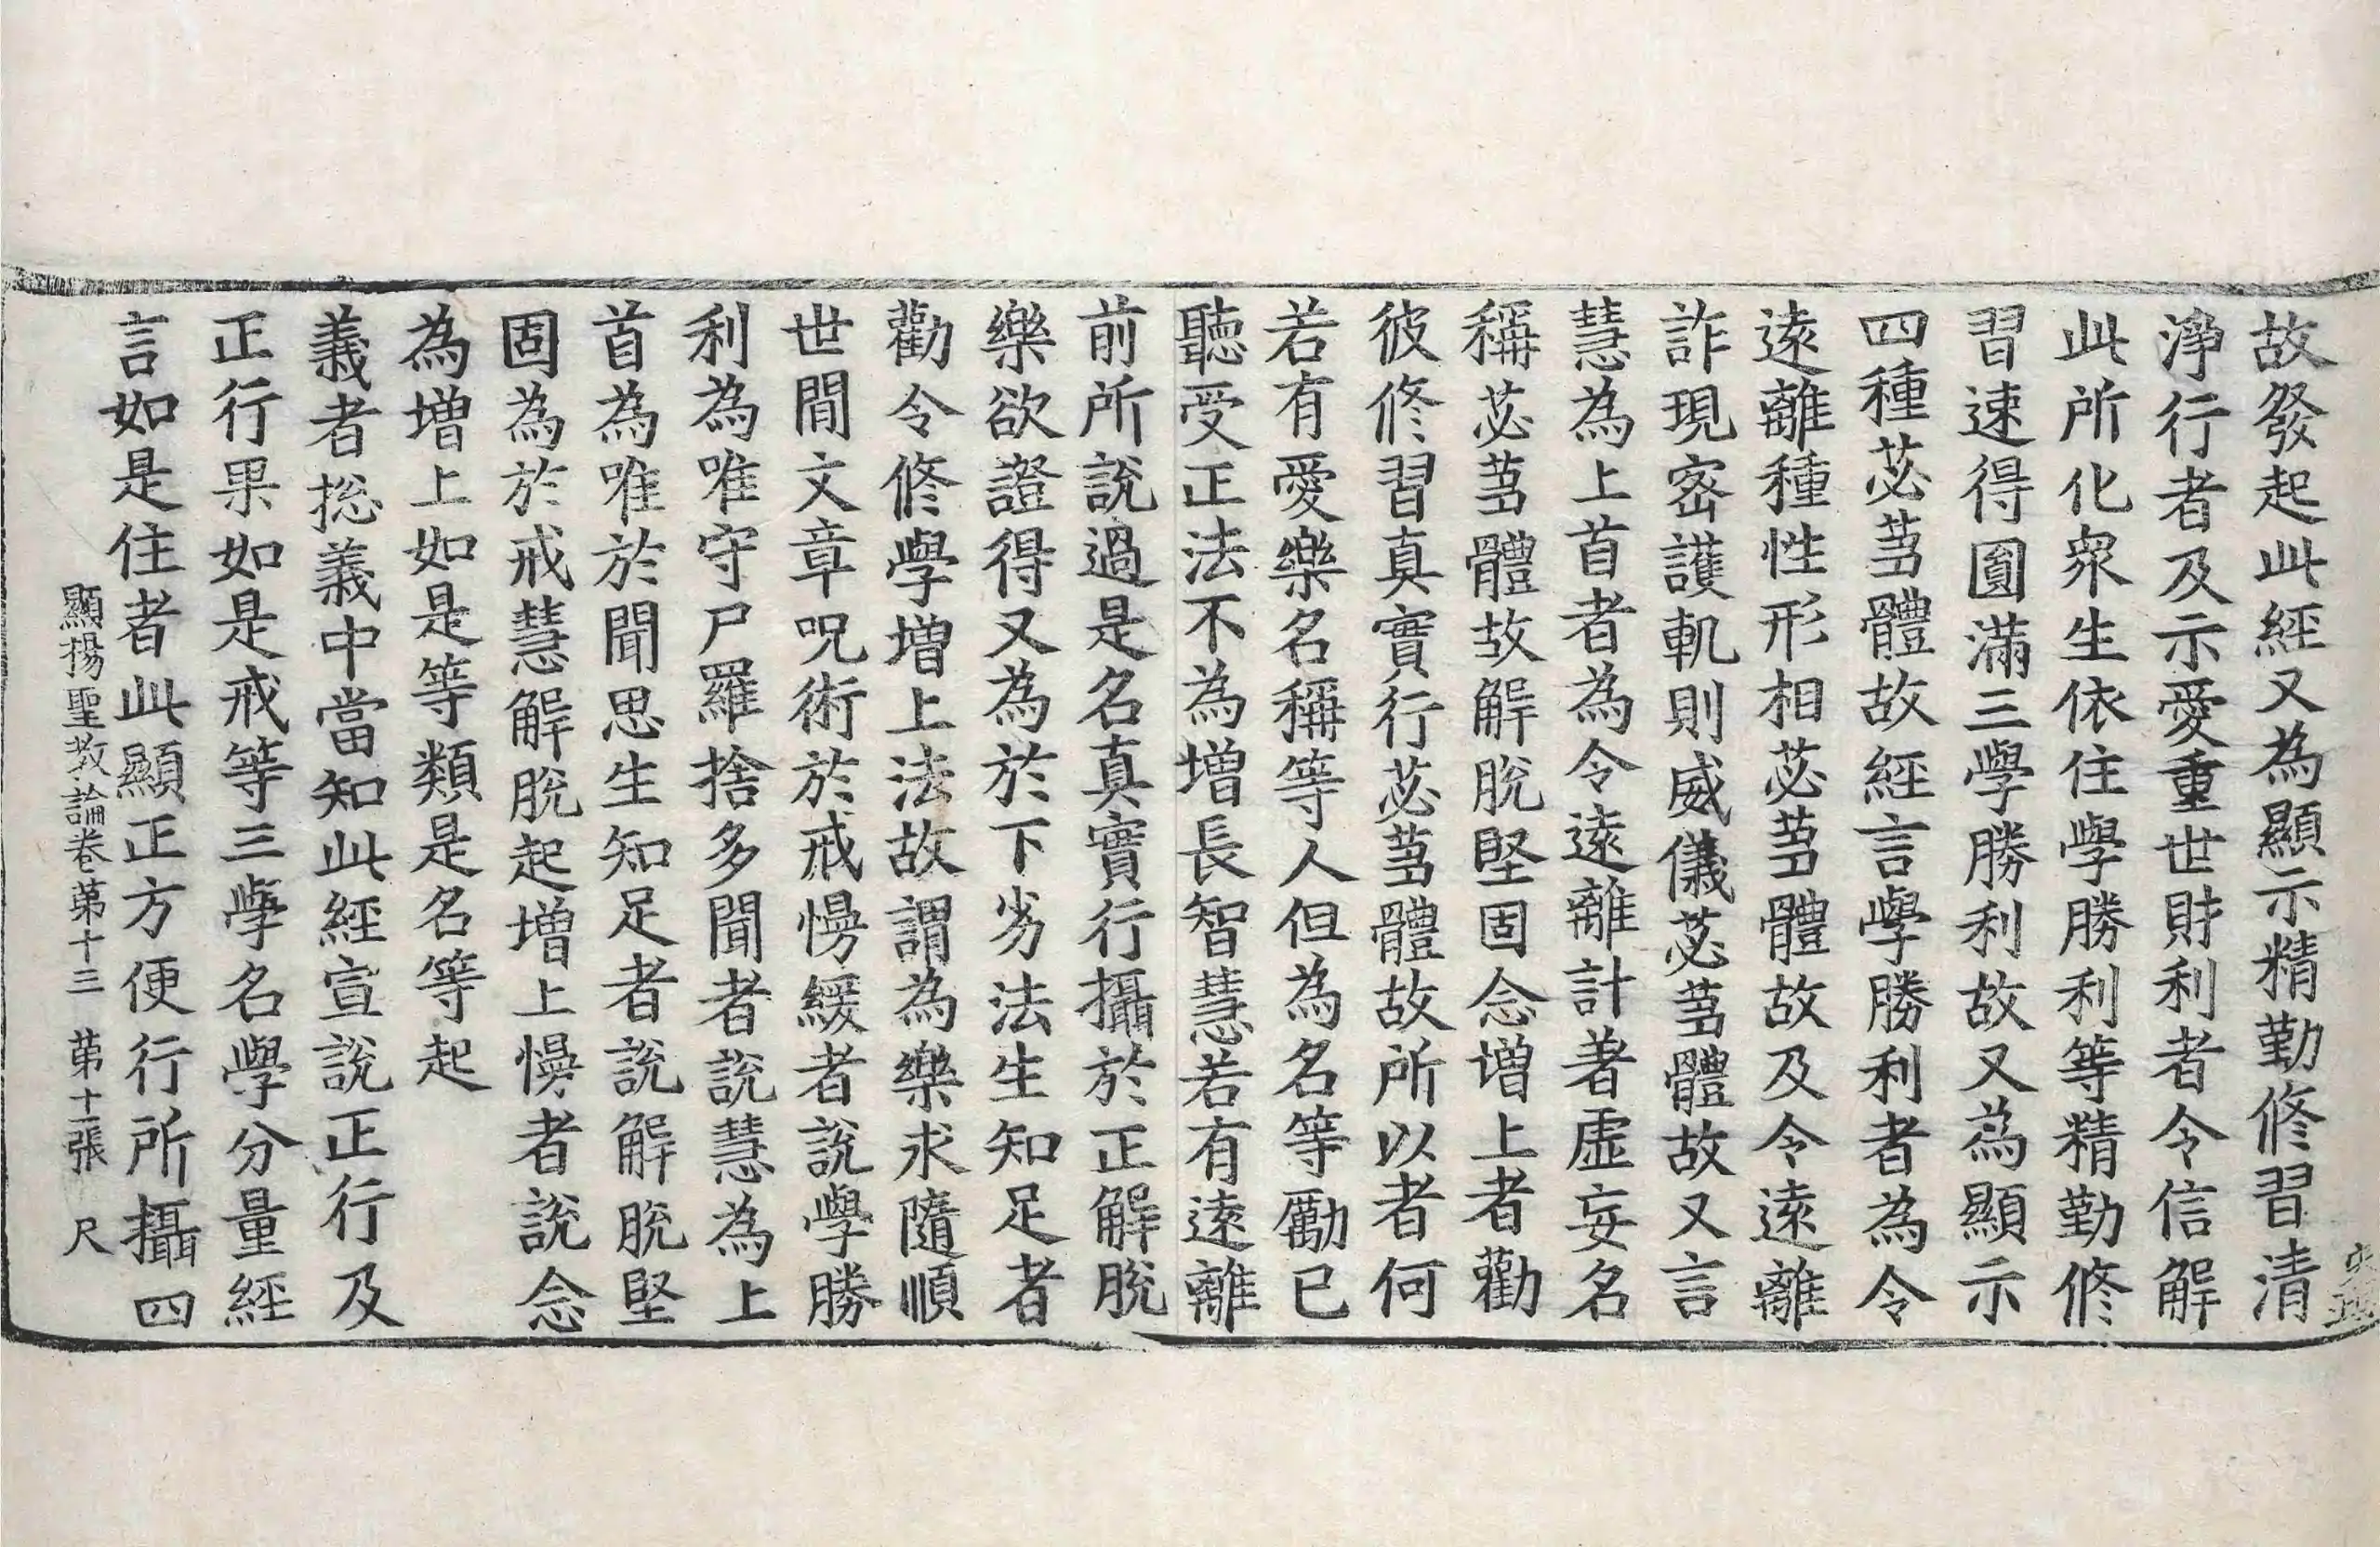 故發起此經又為顯示精勤修習清
淨行者及示愛重世財利者令信解
此所化衆生依住學勝利等精勤修
習速得圓滿三學勝利故又為顯示
四種苾蒭體故經言學勝利者為令
遠離種性形相苾蒭體故及令遠離
詐現密護軌則威儀苾蒭體故又言
慧為上首者為令遠離計著虛妄名
稱苾蒭體故解脫堅固念增上者勸
彼修習真實行苾蒭體故所以者何
若有愛樂名稱等人但為名等勵已
聽受正法不為增長智慧若有遠離
前所說過是名真實行攝於正解脫
樂欲證得又為於下劣法生知足者
勸令修學增上法故謂為樂求隨順
世間文章呪術於戒慢緩者說學勝
利為唯守尸羅捨多聞者說慧為上
首為唯於聞思生知足者說解脫堅
固為於戒慧解脫起增上慢者說念
為增上如是等類是名等起
義者揔義中當知此經宣說正行及
正行果如是戒等三學名學分量經
言如是住者此顯正方便行所攝四
顯揚聖教論卷第十三　第十二張　尺